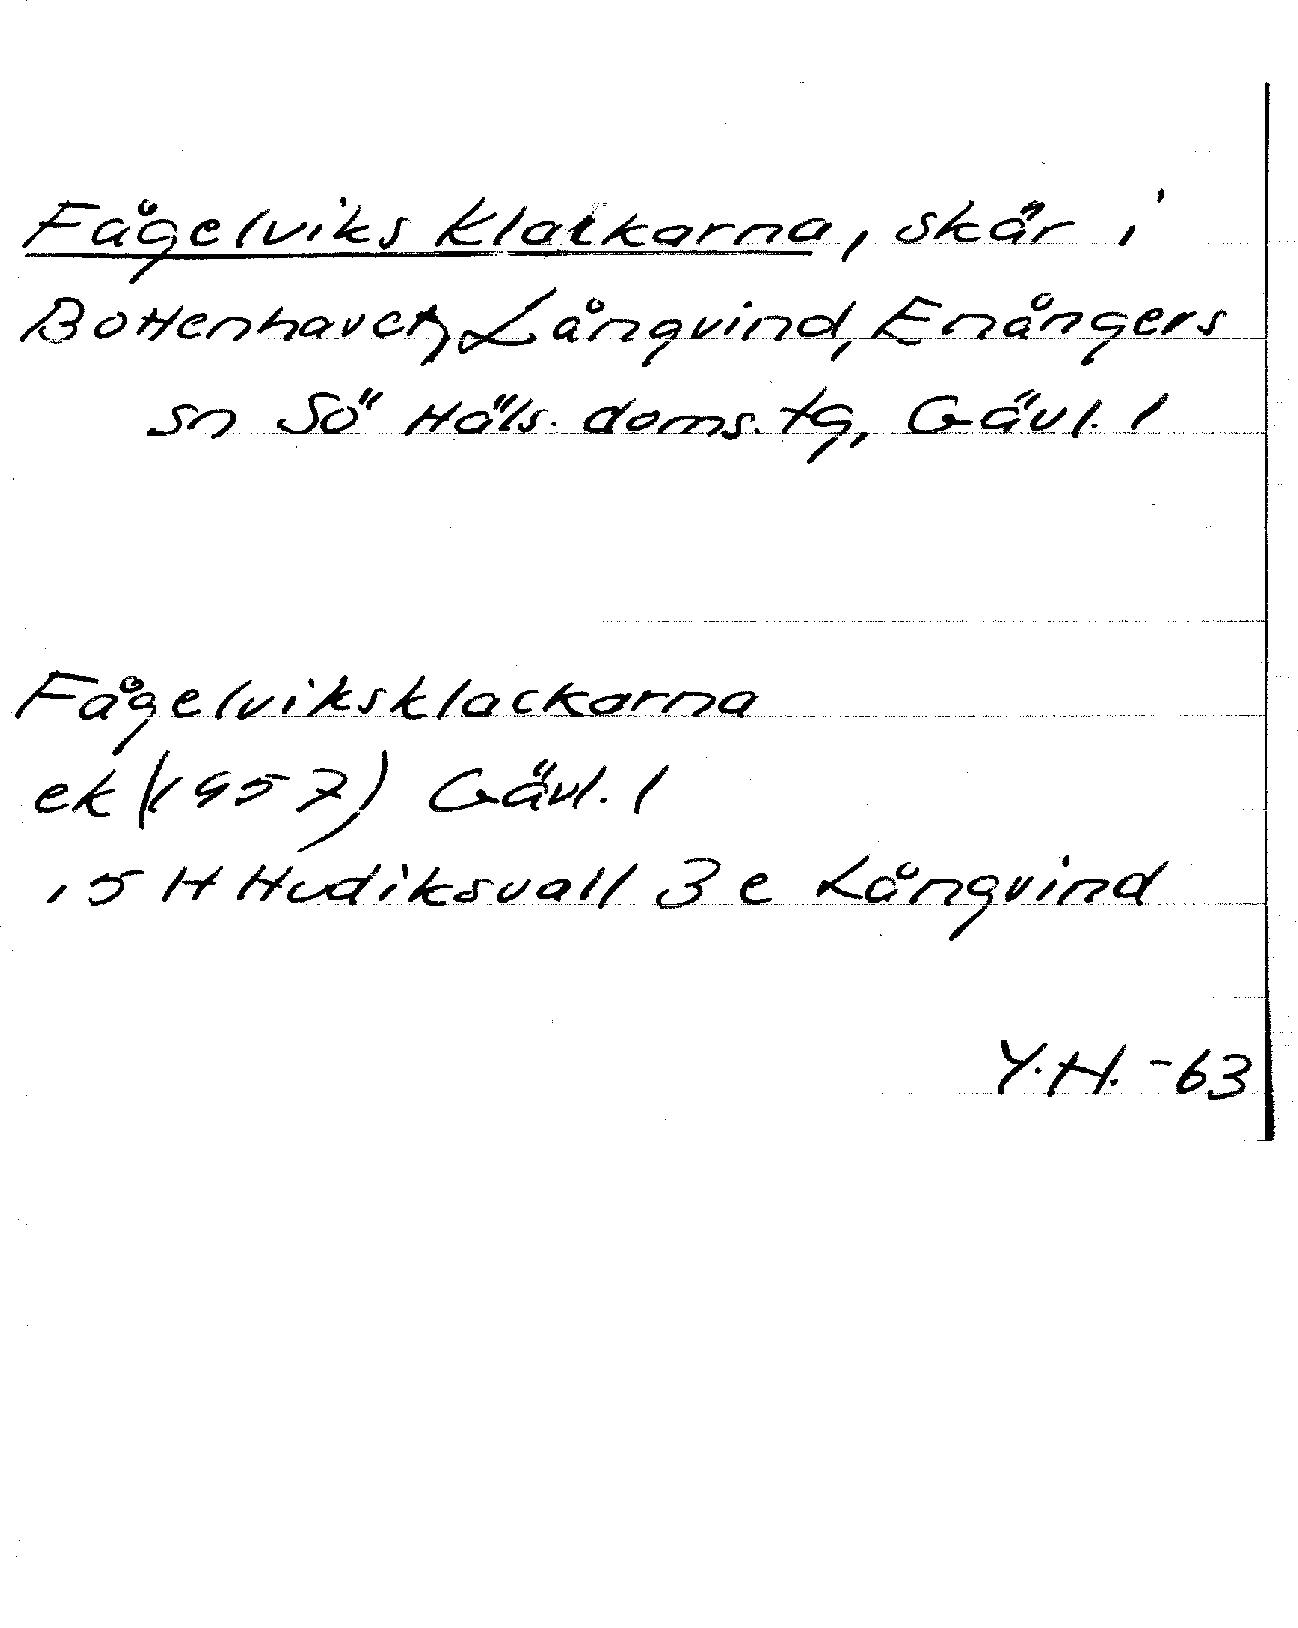 Fågelviks Klackarna, skär i
Bottenhavet, Långvind, Enångers
sn Sö Häls. doms. tg, Gävl. l
Fågelviksklackarna
ek (1957) Gävl. l
15 H Hudiksvall 3 e Långvind
Y.H. -63